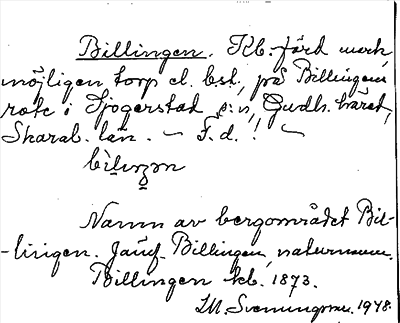 Billingen. Kb.-förd mark,
möjligen torp el. bst., på Billingens
rote i Sjogerstad s:n, Gudh. härad,
Skarab. län. – F.d.! –
Namn av bergområdet Bil-
-lingen. Jämf. Billingen, naturnamn.
Billingen kb. 1873.
I.M. Svenningsson. 1948.